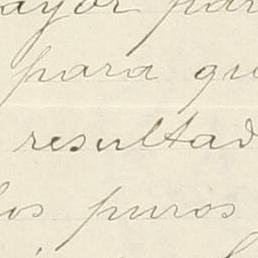 ayor par
para qu
resultad
los puros